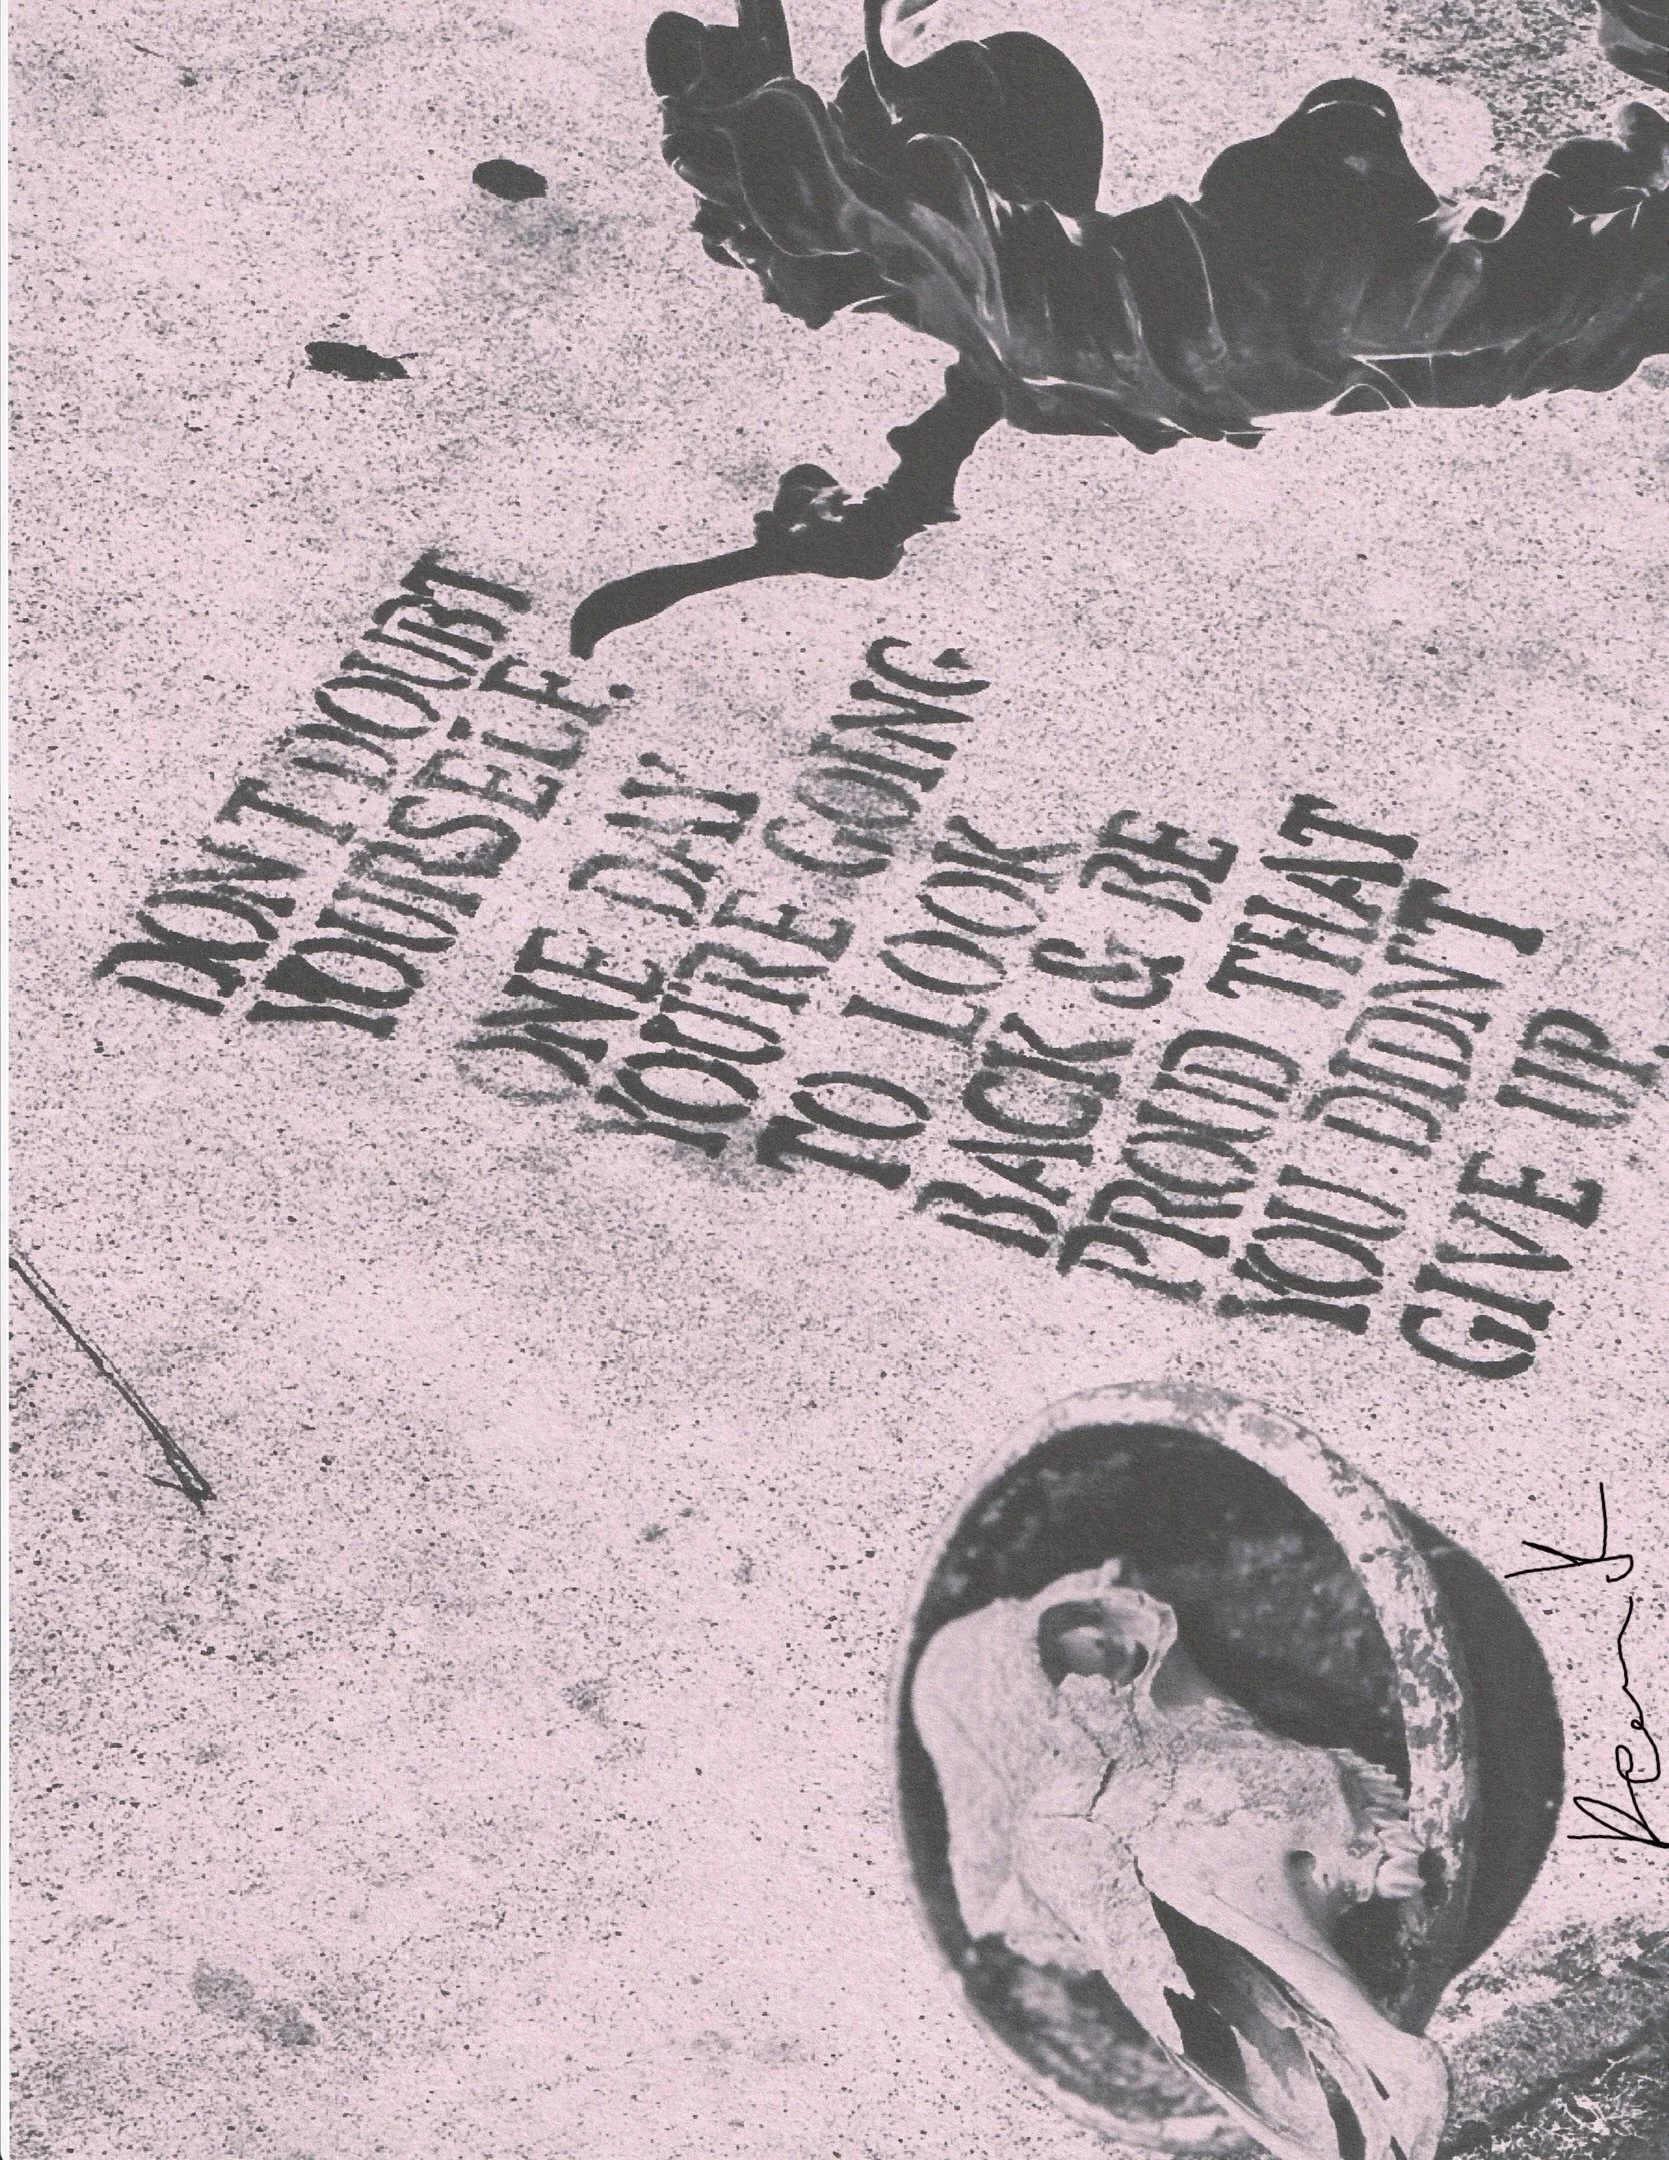 DON'T DOUBT
YOURSELF.
ONE DAY
YOU'RE GOING
TO LOOK
BACK & BE
PROUD THAT
YOU DIDN'T
GIVE UP.